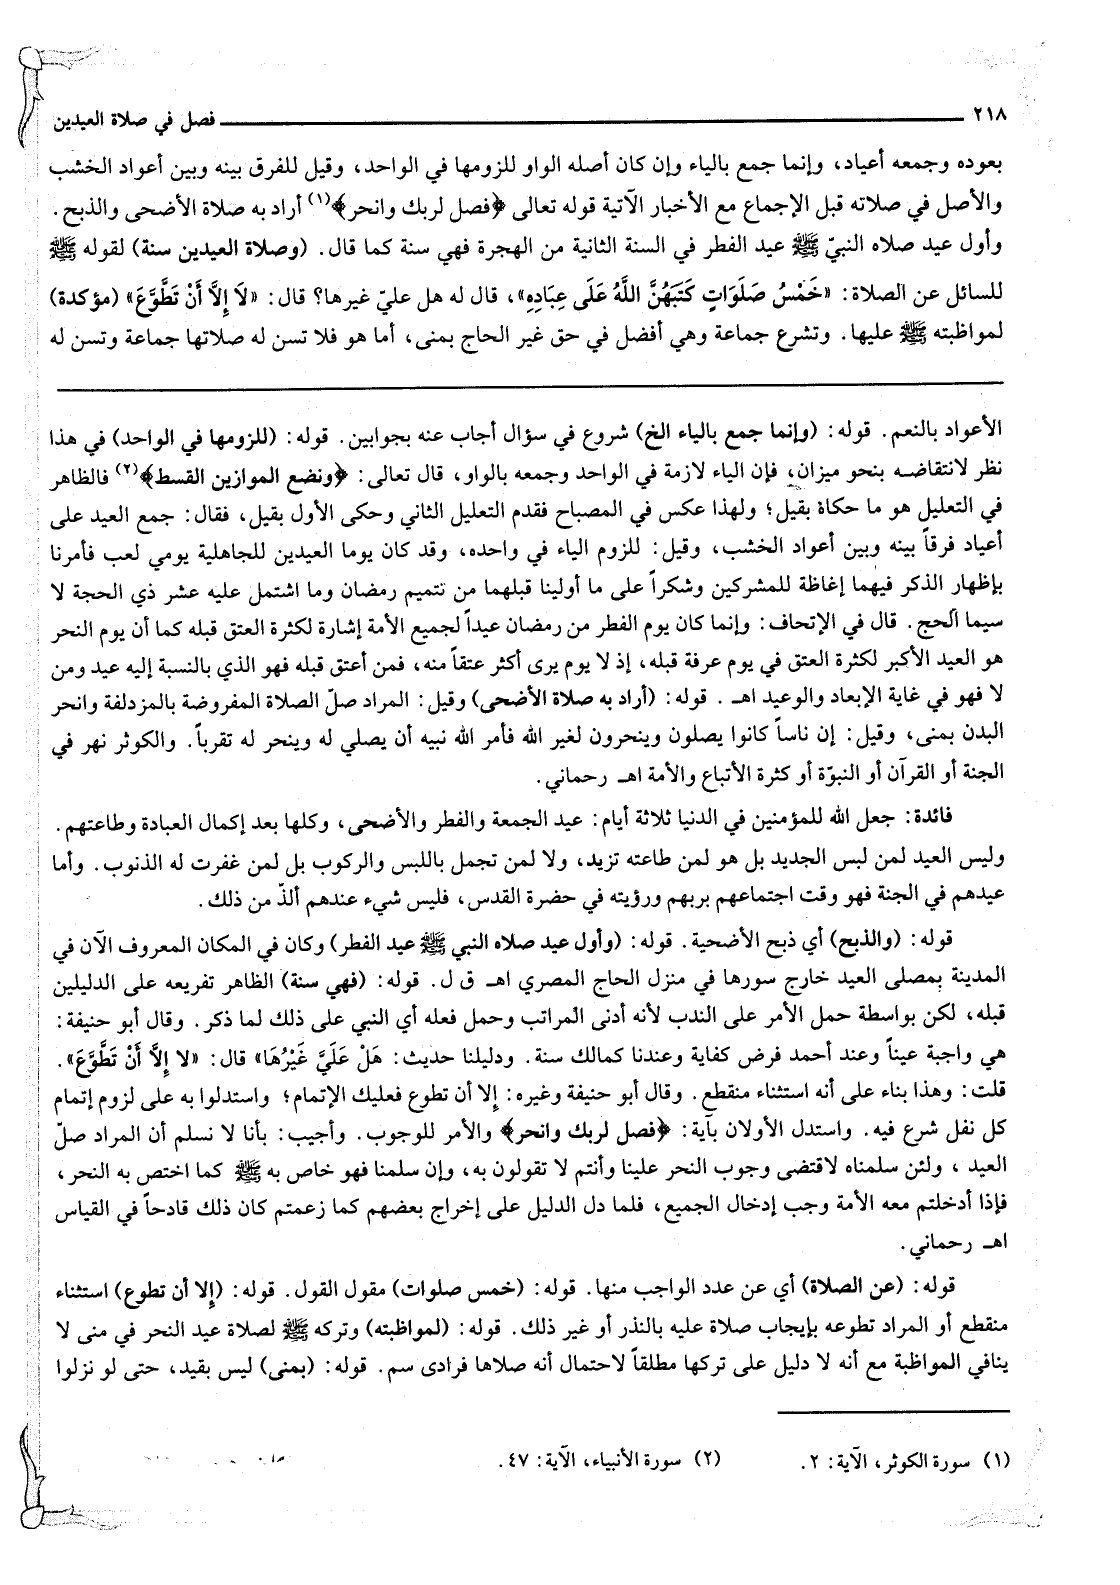 ٢١٨ فصل في صلاة العيدين
بعوده وجمعه أعياد، وإنما جمع بالياء وإن كان أصله الواو للزومها في الواحد، وقيل للفرق بينه وبين أعواد الخشب
والأصل في صلاته قبل الإجماع مع الأخبار الآتية قوله تعالى ﴿فصل لربك وانحر﴾(١) أراد به صلاة الأضحى والذبح.
وأول عيد صلاه النبيّ ﷺ عيد الفطر في السنة الثانية من الهجرة فهي سنة كما قال. (وصلاة العيدين سنة) لقوله ﷺ
للسائل عن الصلاة: «خَمْسُ صَلَوَاتٍ كَتَبَهُنَّ اللَّهُ عَلَى عِبَادِهِ»، قال له هل عليّ غيرها؟ قال: «لَا إِلَّا أَنْ تَطَّوَّعَ» (مؤكدة)
لمواظبته ﷺ عليها. وتشرع جماعة وهي أفضل في حق غير الحاج بمنى، أما هو فلا تسن له صلاتها جماعة وتسن له
الأعواد بالنعم. قوله: (وإنما جمع بالياء الخ) شروع في سؤال أجاب عنه بجوابين. قوله: (للزومها في الواحد) في هذا
نظر لانتقاضه بنحو ميزان، فإن الياء لازمة في الواحد وجمعه بالواو، قال تعالى: ﴿ونضع الموازين القسط﴾(٢) فالظاهر
في التعليل هو ما حكاة بقيل؛ ولهذا عكس في المصباح فقدم التعليل الثاني وحكى الأول بقيل، فقال: جمع العيد على
أعياد فرقاً بينه وبين أعواد الخشب، وقيل: للزوم الياء في واحده، وقد كان يوما العيدين للجاهلية يومي لعب فأمرنا
بإظهار الذكر فيهما إغاظة للمشركين وشكراً على ما أولينا قبلهما من تتميم رمضان وما اشتمل عليه عشر ذي الحجة لا
سيما الحج. قال في الإتحاف: وإنما كان يوم الفطر من رمضان عيداً لجميع الأمة إشارة لكثرة العتق قبله كما أن يوم النحر
هو العيد الأكبر لكثرة العتق في يوم عرفة قبله، إذ لا يوم يرى أكثر عتقاً منه، فمن أعتق قبله فهو الذي بالنسبة إليه عيد ومن
لا فهو في غاية الإبعاد والوعيد اهـ. قوله: (أراد به صلاة الأضحى) وقيل: المراد صلّ الصلاة المفروضة بالمزدلفة وانحر
البدن بمنى، وقيل: إن ناساً كانوا يصلون وينحرون لغير الله فأمر الله نبيه أن يصلي له وينحر له تقرباً. والكوثر نهر في
الجنة أو القرآن أو النبوّة أو كثرة الأتباع والأمة اهـ رحماني.
فائدة: جعل الله للمؤمنين في الدنيا ثلاثة أيام: عيد الجمعة والفطر والأضحى، وكلها بعد إكمال العبادة وطاعتهم.
وليس العيد لمن لبس الجديد بل هو لمن طاعته تزيد، ولا لمن تجمل باللبس والركوب بل لمن غفرت له الذنوب. وأما
عيدهم في الجنة فهو وقت اجتماعهم بربهم ورؤيته في حضرة القدس، فليس شيء عندهم ألذّ من ذلك.
قوله: (والذبح) أي ذبح الأضحية. قوله: (وأول عيد صلاه النبي ﷺ عيد الفطر) وكان في المكان المعروف الآن في
المدينة بمصلى العيد خارج سورها في منزل الحاج المصري اهـ ق ل. قوله: (فهي سنة) الظاهر تفريعه على الدليلين
قبله، لكن بواسطة حمل الأمر على الندب لأنه أدنى المراتب وحمل فعله أي النبي على ذلك لما ذكر. وقال أبو حنيفة:
هي واجبة عيناً وعند أحمد فرض كفاية وعندنا كمالك سنة. ودليلنا حديث: هَلْ عَلَيَّ غَيْرُهَا» قال: «لا إِلاَّ أَنْ تَطَّوَّعَ».
قلت: وهذا بناء على أنه استثناء منقطع. وقال أبو حنيفة وغيره: إلا أن تطوع فعليك الإتمام؛ واستدلوا به على لزوم إتمام
كل نفل شرع فيه. واستدل الأولان بآية: ﴿فصل لربك وانحر﴾ والأمر للوجوب. وأجيب: بأنا لا نسلم أن المراد صلّ
العيد، ولئن سلمناه لاقتضى وجوب النحر علينا وأنتم لا تقولون به، وإن سلمنا فهو خاص به ﷺ كما اختص به النحر،
فإذا أدخلتم معه الأمة وجب إدخال الجميع، فلما دل الدليل على إخراج بعضهم كما زعمتم كان ذلك قادحاً في القياس
اهـ رحماني.
قوله: (عن الصلاة) أي عن عدد الواجب منها. قوله: (خمس صلوات) مقول القول. قوله: (إلا أن تطوع) استثناء
منقطع أو المراد تطوعه بإيجاب صلاة عليه بالنذر أو غير ذلك. قوله: (لمواظبته) وتركه ﷺ لصلاة عيد النحر في منى لا
ينافي المواظبة مع أنه لا دليل على تركها مطلقاً لاحتمال أنه صلاها فرادى سم. قوله: (بمنى) ليس بقيد، حتى لو نزلوا
(١) سورة الكوثر، الآية: ٢. (٢) سورة الأنبياء، الآية: ٤٧.